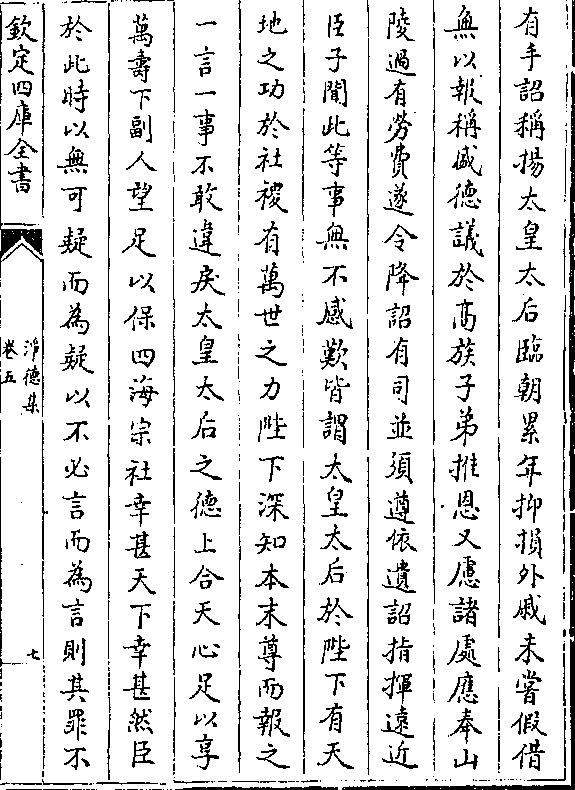 有手詔稱揚太皇太后臨朝累年抑損外戚未嘗假借
無以報稱盛德議於髙族子弟推恩又慮諸處應奉山
陵過有勞費遂令降詔有司並須遵依遺詔指揮遠近
臣子聞此等事無不感歎皆謂太皇太后於陛下有天
地之功於社稷有萬世之力陛下深知本末尊而報之
一言一事不敢違戾太皇太后之德上合天心足以享
萬壽下副人望足以保四海宗社幸甚天下幸甚然臣
於此時以無可疑而為疑以不必言而為言則其罪不
欽定四庫全書
淨德集
卷五
七